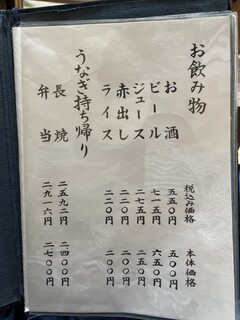 お飲み物
税込み価格 本体価格
お酒 五五〇円 五〇〇円
ビール 七一五円 六五〇円
ジュース 二七五円 二五〇円
赤出し 二二〇円 二〇〇円
ライス 二二〇円 二〇〇円
うなぎ持ち帰り
長焼 二五九二円 二四〇〇円
弁当 二九一六円 二七〇〇円